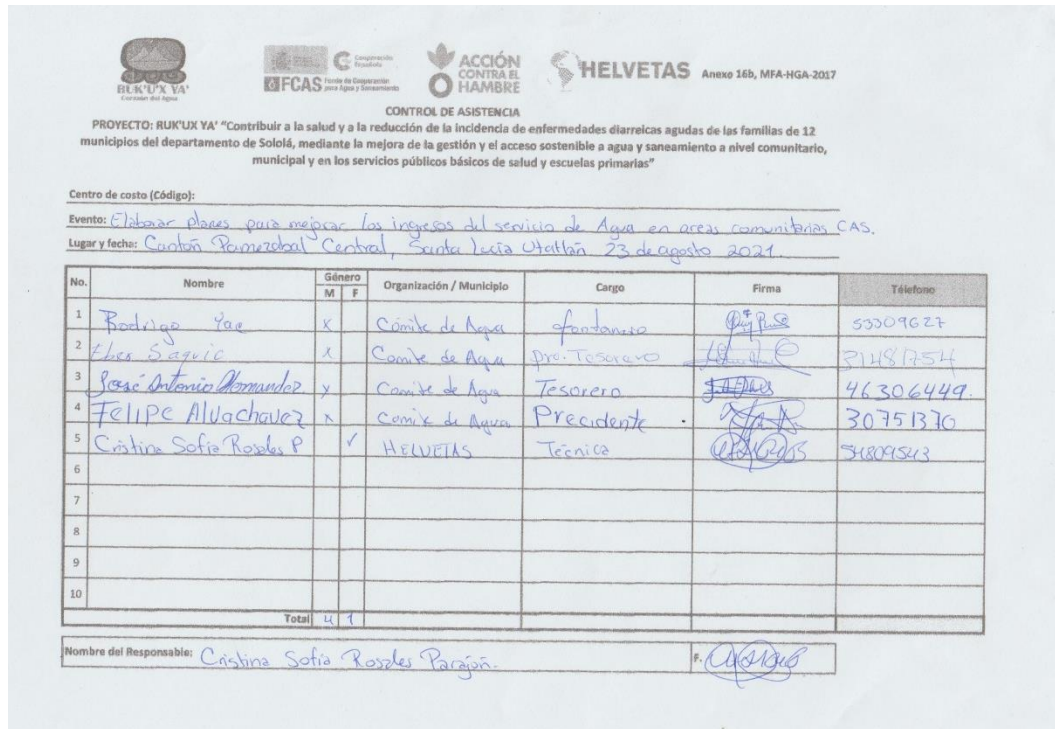 RUK'U'X YA'
Corazón del Agua
Cooperación Española
FCAS Fondo de Cooperación para Agua y Saneamiento
ACCIÓN CONTRA EL HAMBRE
HELVETAS Anexo 16b, MFA-HGA-2017
CONTROL DE ASISTENCIA
PROYECTO: RUK'UX YA' “Contribuir a la salud y a la reducción de la incidencia de enfermedades diarreicas agudas de las familias de 12
municipios del departamento de Sololá, mediante la mejora de la gestión y el acceso sostenible a agua y saneamiento a nivel comunitario,
municipal y en los servicios públicos básicos de salud y escuelas primarias”
Centro de costo (Código):
Evento: Elaborar planes para mejorar los ingresos del servicio de Agua en areas comunitarias CAS.
Lugar y fecha: Cantón Central, Santa Lucía Utatlán 23 de agosto 2021.
No. Nombre Género M F Organización / Municipio Cargo Firma Télefono
1 Rodrigo Yac X Comite de Agua fontanero 53309627
2 Eber Saquic X Comite de Agua pro. Tesorero 31481754
3 José Antonio X Comite de Agua Tesorero 46306449.
4 Felipe Alvachavez X Comite de Agua Precidente 30751370
5 Cristina Sofía Rosales P ✓ HELVETAS Técnica 54809543
6
7
8
9
10
Total 4 1
Nombre del Responsable: Cristina Sofía Rosales Parajón. F.